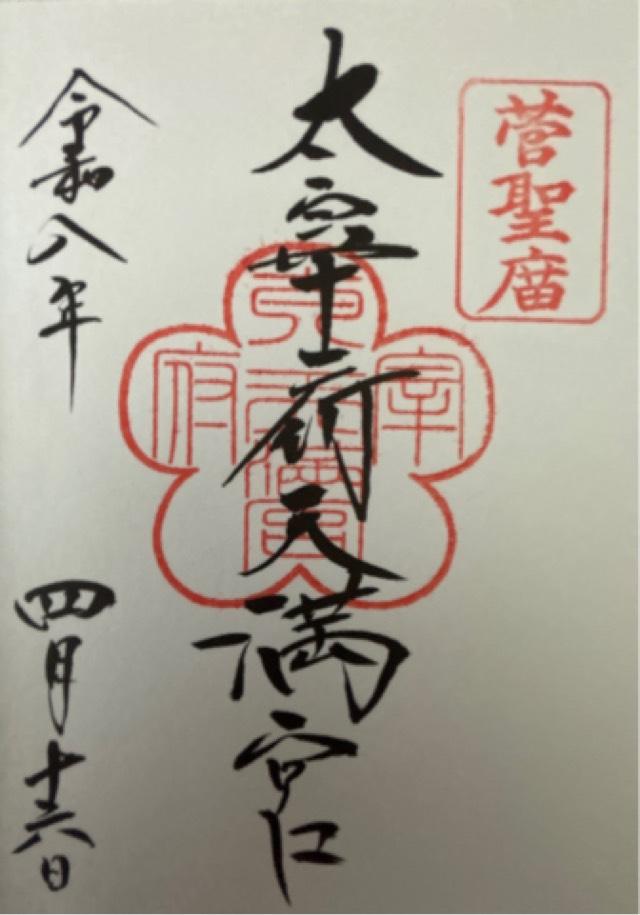 菅聖庿
太宰府天満宮
宰
府
令和八年
四月十六日